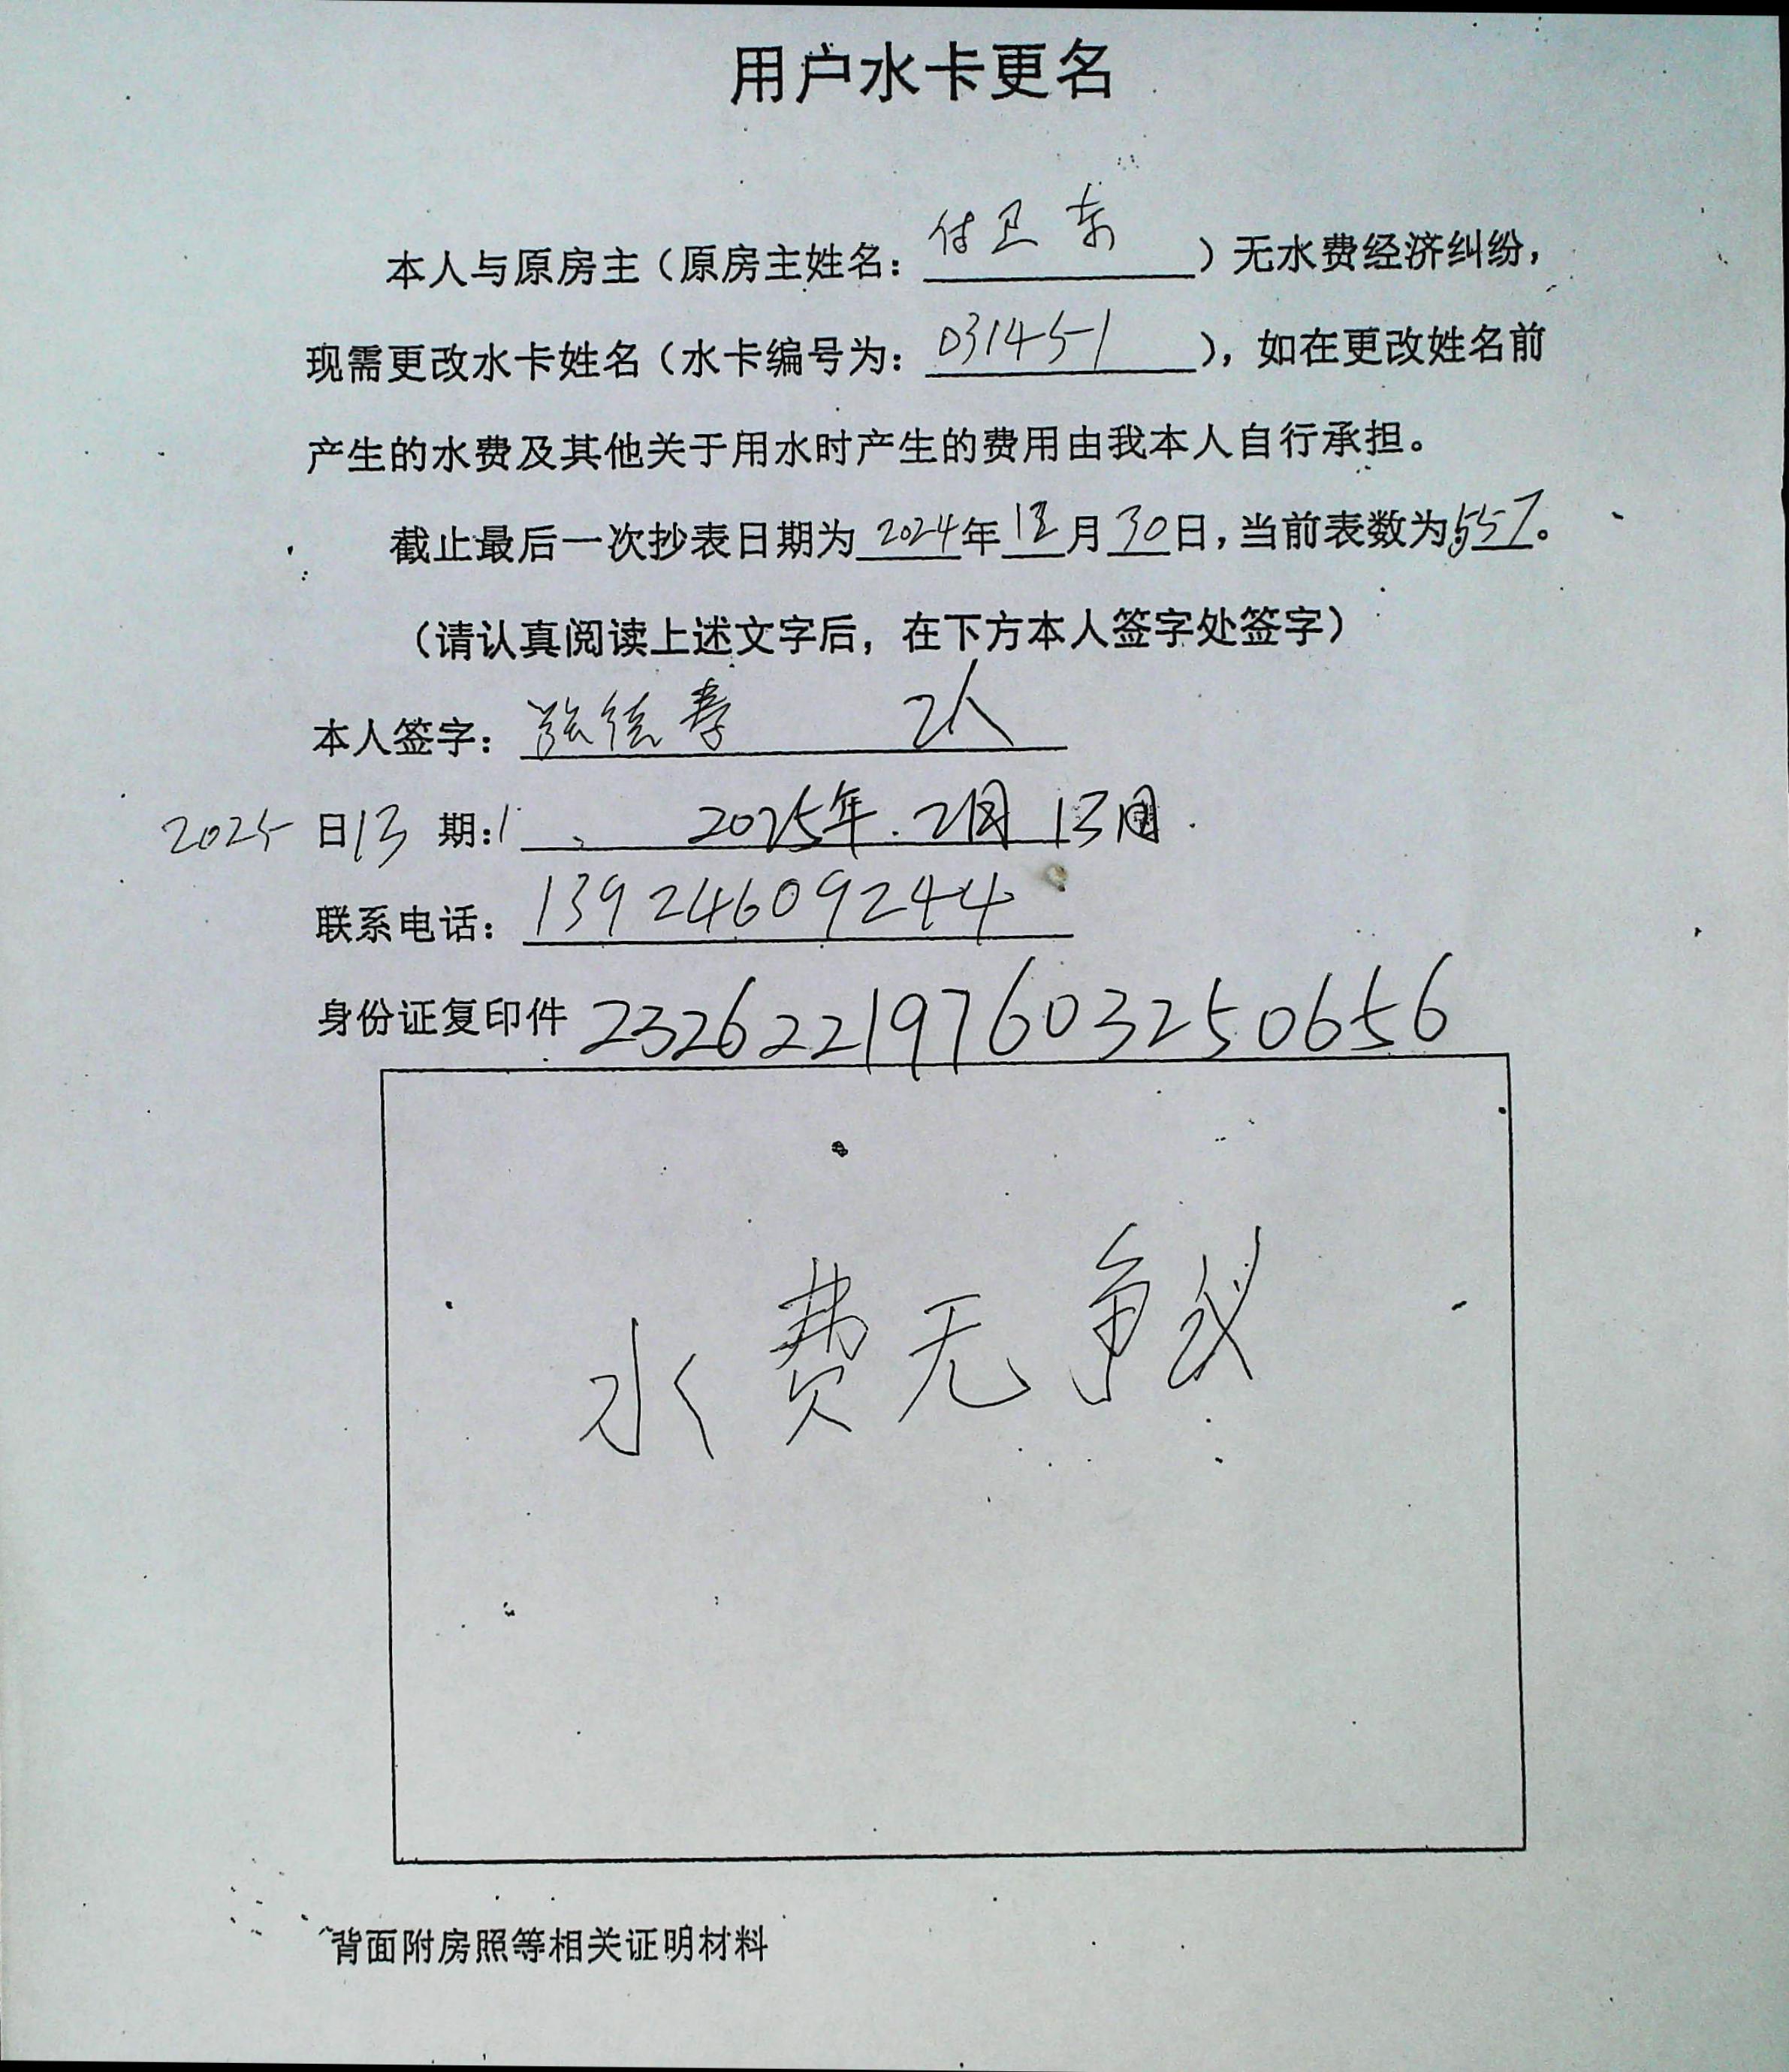 用户水卡更名
本人与原房主（原房主姓名：付卫东）无水费经济纠纷，
现需更改水卡姓名（水卡编号为：03145-1），如在更改姓名前
产生的水费及其他关于用水时产生的费用由我本人自行承担。
截止最后一次抄表日期为2024年12月30日，当前表数为557。
（请认真阅读上述文字后，在下方本人签字处签字）
本人签字：张德孝 2人
2025 日13 期：1、 2025年.2月13日.
联系电话：13924609244
身份证复印件 232622197603250656
水费无争议
背面附房照等相关证明材料